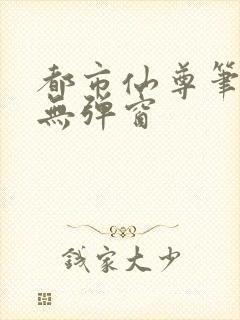 都市仙尊筆
無彈窗
錢家大少